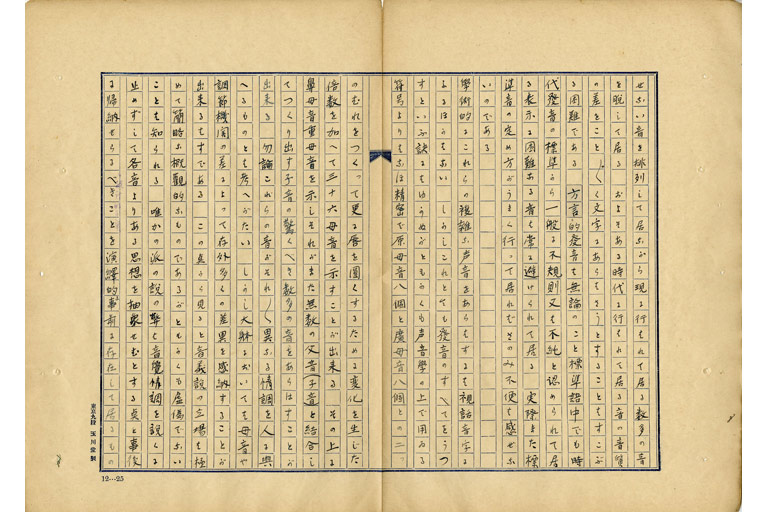 せない音を排列して居ながら現に行はれてゐる数多の音
を脱して居る　およそある時代に行はれて居る音の音質
の差をこと〴〵く文字にあらはさうとすることはすこぶ
る困難である　方言的発音は無論のこと標準語中でも時
代発音の標準から一般に不規則又は不純と認められて居
る表示に困難なる音は常に避けられて居る　実際また標
準音の定め方がうまく行って居ればさのみ不便を感ぜな
いのである
学術的にこれらの複雑な声音をあらはするは視話音字に
よるほうはない　しかしこれとても後音のすべてをうつ
すといふ訣にはゆかぬがともかくも声音学の上で用ゐる
符号よりもなほ精密で原母音八個と広母音八個との二つ
のむれをつくって更に唇を円くするために変化を生じた
倍数を加へて三十六母音を示すことが出来る　その上に
鼻母音重母音を示しそれがまた無数の父音(子音)と結合し
てつくり出す子音の驚くべき数多の音をあらはすことが
出来る　勿論これらの音がそれ〴〵異なる情調を人に与
へるものとも考へがたい　しかし大躰に於いては母音や
調節機関の差によって存外多くの差異を感納することが
出来るはずである　この点から見ると音義説の立場は極
めて簡略な概観的なものであるがともかくも虚偽でない
ことは知られる　唯かの派の説の弊は音覚情調を説くに
止めずして各音よりある思想を抽象せむとする点と事後
に帰納せらるべきことを演繹的事前に存在して居るもの
東京九段　玉川堂製
12…25